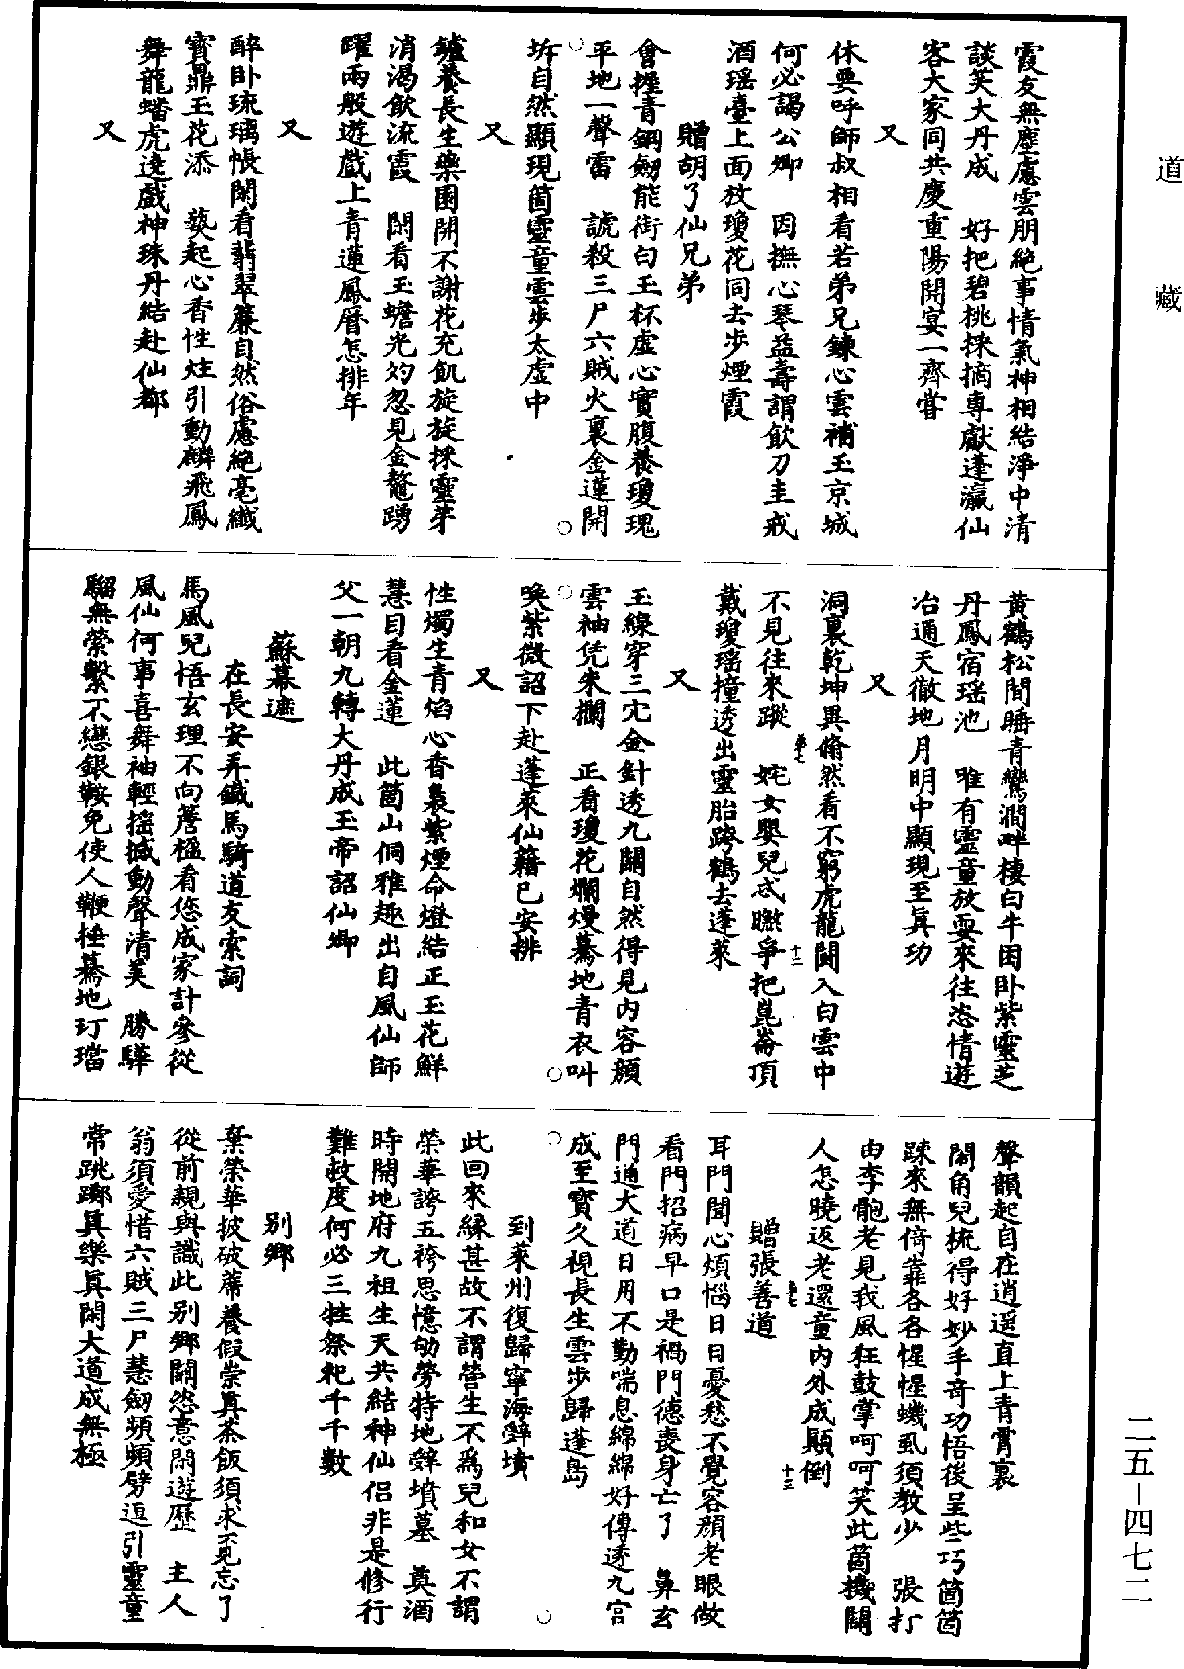 道藏
霞友無塵慮雲朋絕事情氣神相結淨中清
談笑大丹成　好把碧桃採摘專獻蓬瀛仙
客大家同共慶重陽開宴一齊嘗
又
休要呼師叔相看若弟兄鍊心雲補玉京城
何必謁公卿　因撫心琴益壽謂飲刀圭戒
酒瑤臺上面放瓊花同去步煙霞
贈胡了仙兄弟
會握青鋼劒能銜白玉杯虛心實腹養瓊瑰
平地一聲雷　諕殺三尸六賊火裏金蓮開
坼自然顯現箇靈童雲步太虛中
又
鑪養長生藥園開不謝花充飢旋旋採靈芽
消渴飲流霞　閑看玉蟾光灼忽見金鼇踴
躍兩般遊戲上青蓮鳳曆怎排年
又
醉卧琉璃帳閑看翡翠簾自然俗慮絕毫纖
寶鼎玉花添　爇起心香性炷引動麟飛鳳
舞龍蟠虎遶戲神珠丹結赴仙都
又
黃鶴松間睡青鸞澗畔棲白牛困卧紫靈芝
丹鳳宿瑤池　唯有靈童放耍來往恣情遊
冶通天徹地月明中顯現至真功
又
洞裏乾坤異翛然看不窮虎龍鬭入白雲中
不見往來蹤　姹女嬰兒忒瞅爭把崑崙頂
戴瓊瑤撞透出靈胎跨鶴去蓬萊
又
玉線穿三宂金針透九關自然得見內容顏
雲袖凭朱欄　正看瓊花爛熳驀地青衣叫
喚紫微詔下赴蓬萊仙籍已安排
又
性燭生青焰心香裊紫煙命燈結正玉花鮮
慧目看金蓮　此箇山侗雅趣出自風仙師
父一朝九轉大丹成玉帝詔仙卿
蘇幕遮
在長安弄鐵馬騎道友索詞
馬風兒悟玄理不向簷楹看您成家計參從
風仙何事喜舞袖輕搖撼動聲清美　勝驊
騮無縈繫不戀銀鞍免使人鞭捶驀地玎璫
聲韻起自在逍遥直上青霄裏
鬧角兒梳得好妙手奇功悟後呈些巧箇箇
踈來無倚靠各各惺惺蟣虱須教少　張打
由李鮑老見我風狂鼓掌呵呵笑此箇機關
人怎曉返老還童內外成顛倒
贈張善道
耳門聞心煩惱日日憂愁不覺容顏老眼做
看門招病早口是禍門德喪身亡了　鼻玄
門通大道日用不勤喘息綿綿好傳透九宮
成至寶久視長生雲步歸蓬島
到萊州復歸寧海辭墳
此回來緣甚故不謂營生不為兒和女不謂
榮華誇五袴思憶劬勞特地辭墳墓　奠酒
時開地府九祖生天共結神仙侶非是修行
難救度何必三牲祭祀千千數
別鄉
棄榮華披破蓆養假崇真茶飯須求覓忘了
從前親與識此别鄉關恣意閑遊歷　主人
翁須愛惜六賊三尸慧劒頻頻劈迤引靈童
常跳躑真樂真閑大道成無極
二五—四七二